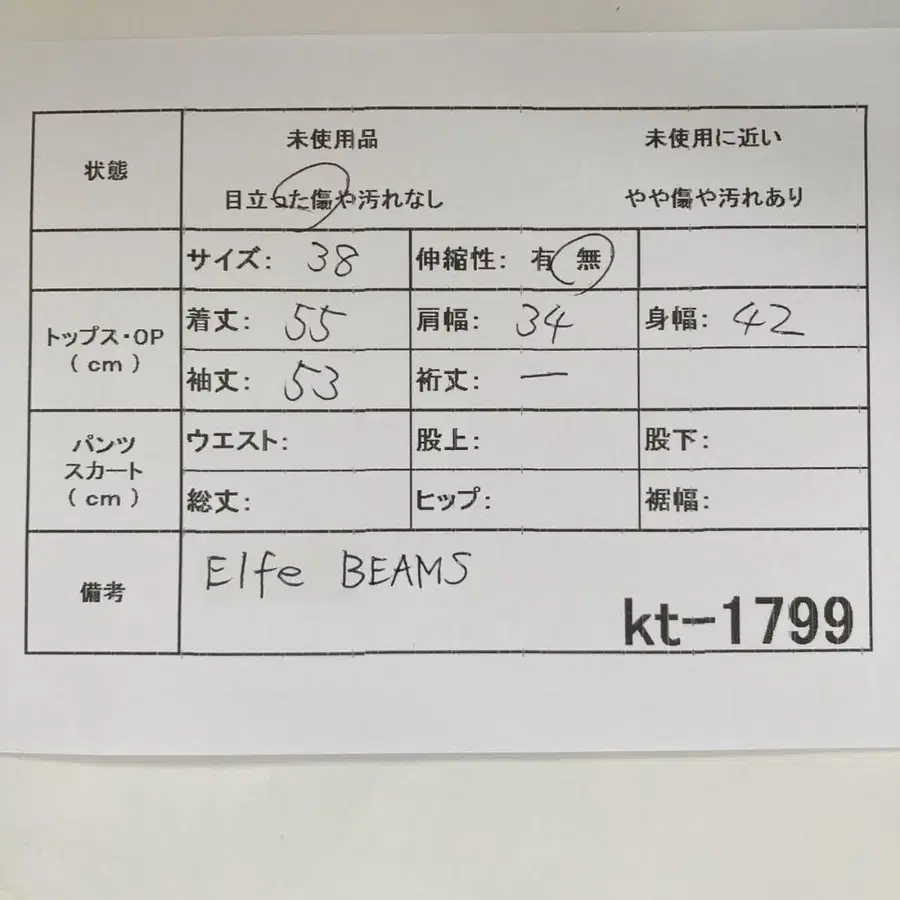 状態
未使用品 未使用に近い
目立った傷や汚れなし やや傷や汚れあり
サイズ: 38 伸縮性: 有 無
トップス・OP
(cm)
着丈: 55 肩幅: 34 身幅: 42
袖丈: 53 裄丈: ー
パンツ
スカート
(cm)
ウエスト: 股上: 股下:
総丈: ヒップ: 裾幅:
備考
Elfe BEAMS
kt-1799